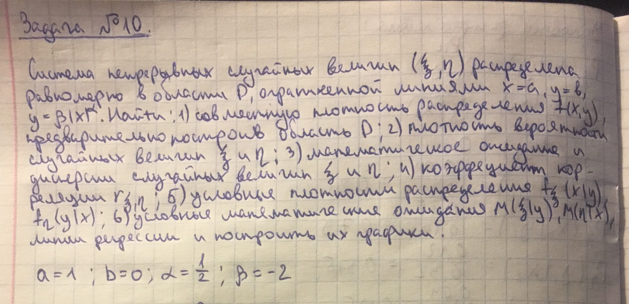 Задача №10.
Система непрерывных случайных величин (ξ, η) распределена
равномерно в области D, ограниченной линиями x=a, y=b,
y=β|x|^α. Найти: 1) совместную плотность распределения f(x,y),
предварительно построив область D; 2) плотность вероятности
случайных величин ξ и η; 3) математическое ожидание и
дисперсии случайных величин ξ и η; 4) коэффициент кор-
реляции r ξ,η; 5) условные плотности распределения f ξ (x|y),
f η (y|x); 6) условные математические ожидания M(ξ|y), M(η|x),
линии регрессии и построить их графики.
a=1; b=0; α=1/2; β=-2